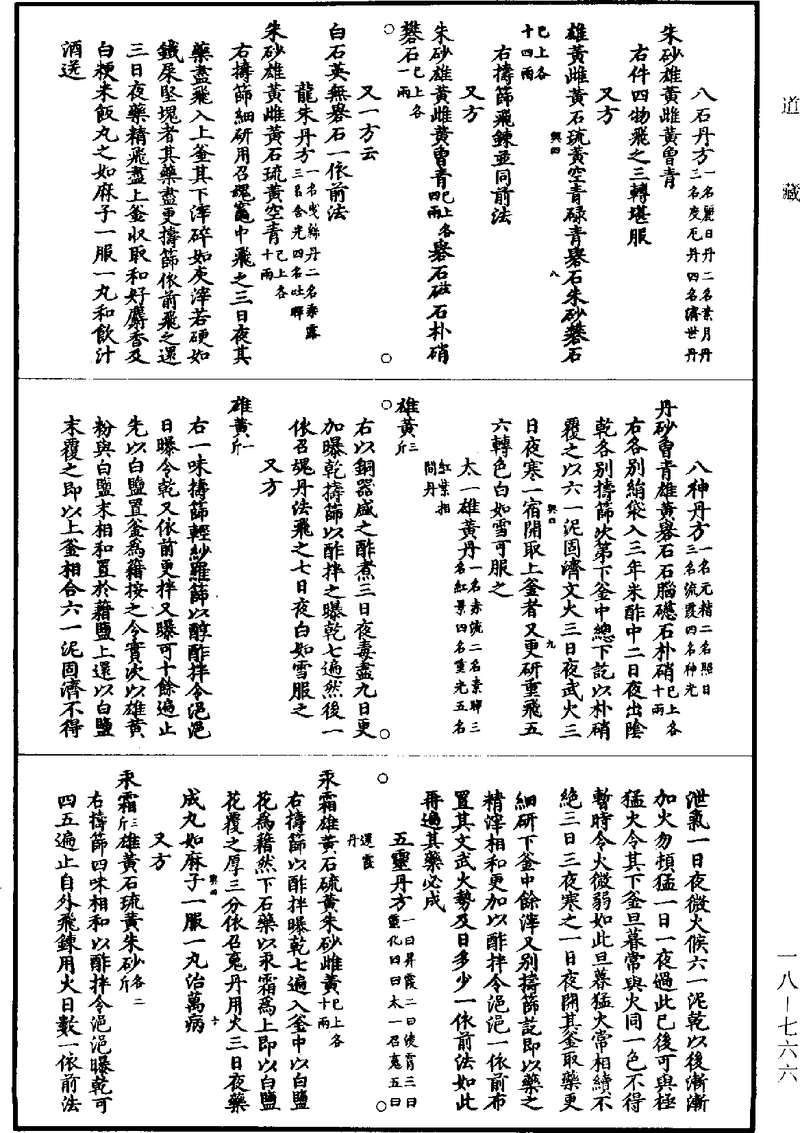 道藏
八石丹方一名麗日丹二名素月丹
三名度厄丹四名濟世丹
朱砂雄黃雌黃曾青
右件四物飛之三轉堪服
又方
雄黃雌黃石琉黃空青碌青礜石朱砂礬石
已上各
十四兩
右擣篩飛鍊並同前法
又方
朱砂雄黃雌黃曾青已上各
四兩礜石磁石朴硝
礬石已上各
一兩
又一方云
白石英無礜石一依前法
龍朱丹方一名曳絲丹二名垂露
三名含光四名吐暉
朱砂雄黃雌黃石琉黃空青已上各
十兩
右擣篩細研用召魂竈中飛之三日夜其
藥盡飛入上釜其下滓碎如灰滓若硬如
鐵屎堅塊者其藥盡更擣篩依前飛之還
三日夜藥精飛盡上釜收取和好麝香及
白粳米飯丸之如麻子一服一丸和飲汁
酒送
八神丹方一名元精二名照日
三名流霞四名神光
丹砂曾青雄黃礜石石腦磁石朴硝已上各
十兩
右各別絹袋入三年朱酢中二日夜出陰
乾各別擣篩次第下釜中總下訖以朴硝
覆之以六一泥固濟文火三日夜武火三
日夜寒一宿開取上釜者又更研重飛五
六轉色白如雪可服之
太一雄黃丹一名赤流二名素暉三
名紅景四名重光五名
紅葉相
間丹
雄黃三
斤
右以銅器盛之酢煮三日夜毒盡九日更
加曝乾擣篩以酢拌之曝乾七遍然後一
依召魂丹法飛之七日夜白如雪服之
又方
雄黃一
斤
右一味擣篩輕紗羅篩以醇酢拌令浥浥
日曝令乾又依前更拌又曝可十餘遍止
先以白鹽置釜為藉按之令實次以雄黃
粉與白鹽末相和置於藉鹽上還以白鹽
末覆之即以上釜相合六一泥固濟不得
泄氣一日夜微火候六一泥乾以後漸漸
加火勿頓猛一日一夜過此已後可與極
猛火令其下釜旦暮常與火同一色不得
暫時令火微弱如此旦暮猛火常相續不
絕三日三夜寒之一日夜開其釜取藥更
細研下釜中餘滓又別擣篩訖即以藥之
精滓相和更加以酢拌令浥浥一依前布
置其文武火勢及日多少一依前法如此
再遍其藥必成
五靈丹方一曰昇霞二曰凌霄三曰
靈化四曰太一召䰟五曰
還霞
丹
汞霜雄黃石硫黃朱砂雌黃已上各
十兩
右擣篩以酢拌曝乾七遍入釜中以白鹽
花為藉然下石藥以汞霜為上即以白鹽
花覆之厚三分依召䰟丹用火三日夜藥
成丸如麻子一服一丸治萬病
又方
汞霜三
斤雄黃石琉黃朱砂各二
斤
右擣篩四味相和以酢拌令浥浥曝乾可
四五遍止自外飛鍊用火日數一依前法
興四
八
興四
九
興四
十
一八—七六六